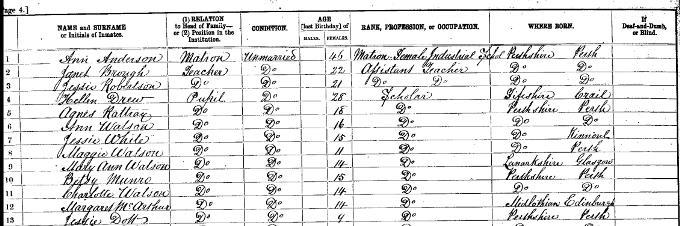 Page 4.]
NAME and SURNAME or Initials of Inmates. (1) RELATION to Head of Family— or (2) Position in the Institution. CONDITION. AGE [last Birthday] of MALES. FEMALES. RANK, PROFESSION, or OCCUPATION. WHERE BORN. If Deaf-and-Dumb, or Blind.
1 Ann Anderson Matron Unmarried 46 Matron Female Industrial Schol Perthshire Perth
2 Janet Brough Teacher Do 22 Assistant Teacher Do Do
3 Jessie Robertson Do Do 21 Do Do Do Do
4 Hellen Drew Pupil Do 28 Scholar Fifshire Crail
5 Agnes Rattray Do Do 18 Do Perthshire Perth
6 Ann Watson Do Do 16 Do Do Do
7 Jessie White Do Do 15 Do Do Kinnoul
8 Maggie Watson Do Do 11 Do Do Perth
9 Mary Ann Watson Do Do 14 Do Lanarkshire Glasgow
10 Betsy Munro Do Do 15 Do Perthshire Perth
11 Charlotte Watson Do Do 14 Do Do Do
12 Margaret McArthur Do Do 14 Do Midlothian Edinburgh
13 Jessie Dott Do Do 9 Do Perthshire Perth